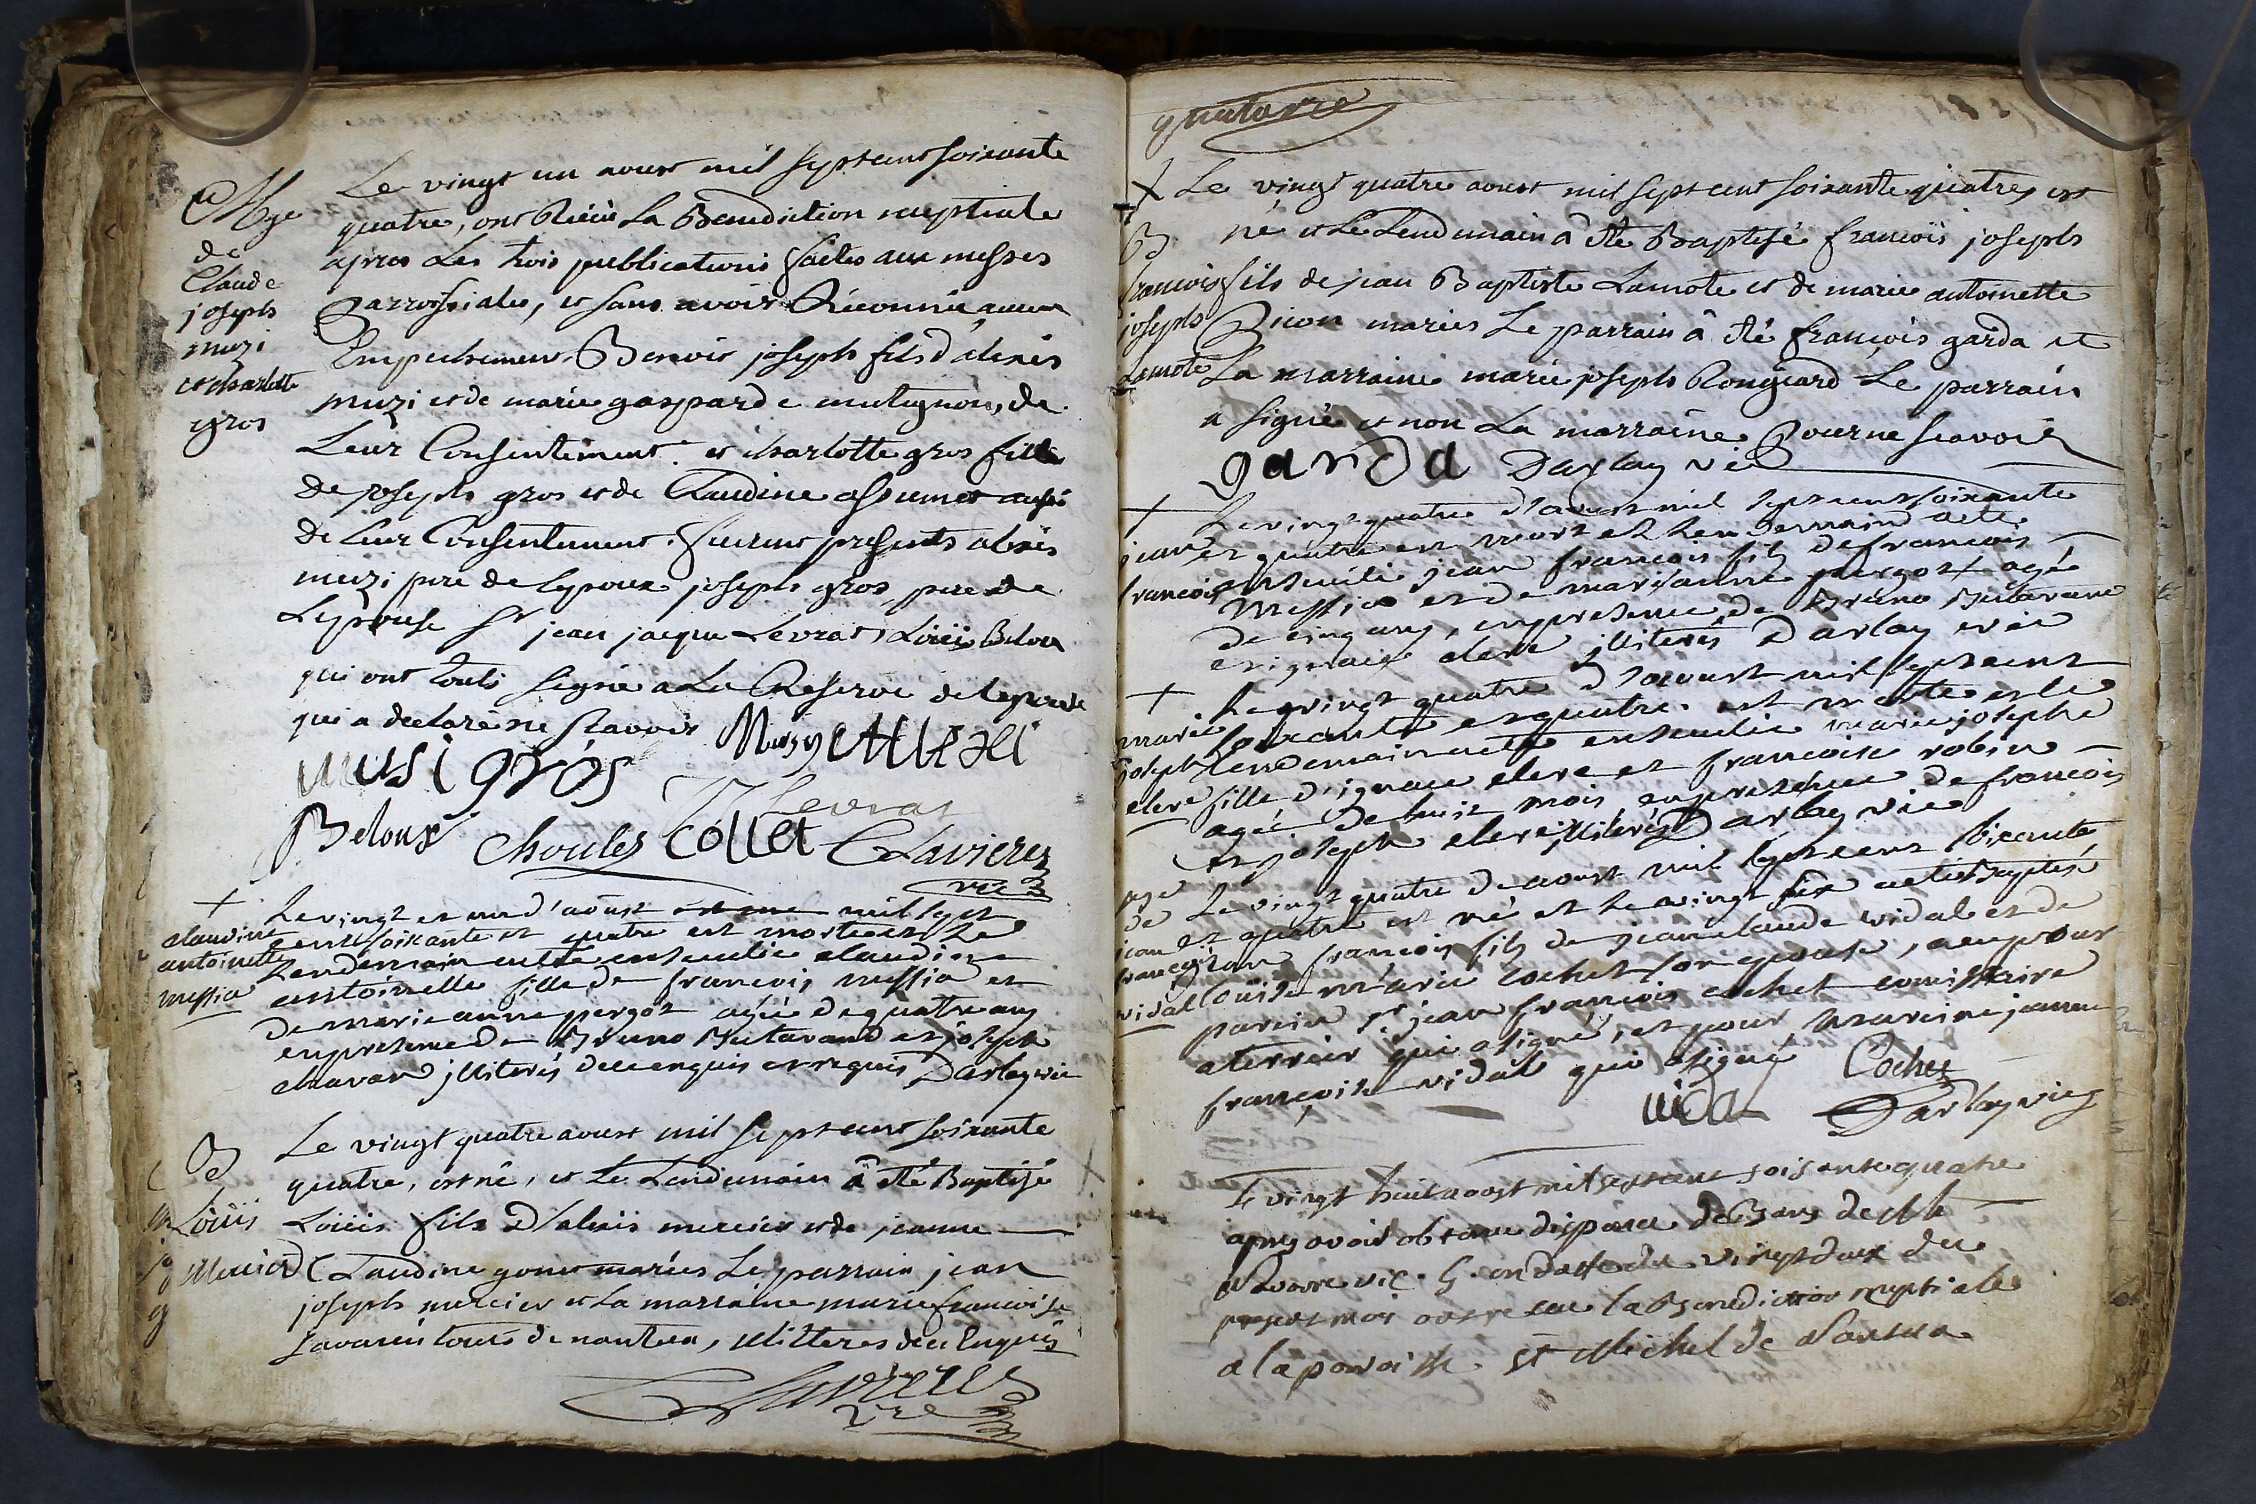 Mge
de
Claude
joseph
muzi
et charlotte
gros
Le vingt un aoust mil sept cent soixante
quatre, ont Réçus La Benediction nuptiale
apres Les trois publications faites aux messes
Parroissiales, et sans avoir Réconnu aucun
Empechement Benoit joseph fils d'alexis
muzi et de marie gasparde mutugnon, de
Leur Consentement et charlotte gros fille
de joseph gros et de Claudine assumet aussi
de Leur Consentement. furent presents alexis
muzi pere de lepoux joseph gros pere de
Lepouse Sr jean jacque Levrat, Loüis Beloux
qui ont touts signé a La Reserve de lepouse
qui a declaré ne sçavoir
musi gros
Levrat
Beloux Choules Collet Clavieres
vic
+
claudine
antoinette
messia
Le vingt et un d'aoust mil sept
cent soixante et quatre est morte et le
Lendemain a été ensevelie claudine
antoinette fille de francois messia et
de marie anne pergot agée de quatre ans
en presence de Bruno Butavand et joseph
chavan illiterés de ce enquis et requis Darlay vic
B
Loüis
Mercier
Le vingt quatre aoust mil sept cent soixante
quatre, est né, et Le Lendemain â été Baptisé
Loüis fils d'alexis mercier et de jeanne
Claudine gonet mariés Le parrain jean
joseph mercier et La marraine marie francoise
Savarin touts de nantua, illitteres de ce Enquis
Clavieres
vic
quatorze
+ Le vingt quatre aoust mil sept cent soixante quatre, est
né et Le Lendemain â été Baptisé francois joseph
B
francois
joseph
Lamote
fils de jean Baptiste Lamote et de marie antoinette
Picon mariés Le parrain â été françois garda et
La marraine marie joseph Rongeard Le parrain
a signé et non La marraine Pour ne scavoir
garda Darlay vic
+
jean
francois
Le vingt quatre d'aoust mil sept cent soixante
et quatre est mort et Lendemain a été
enseveli jean francois fils de francois
Messia et de marianne pergot agé
de cinq ans, en presence de Bruno Butavand
et ignace clere illiterés Darlay vic
+
marie
joseph
clere
Le vingt quatre d'aoust mil sept cent
soixante et quatre est morte et le
lendemain a été ensevelie marie josephe
fille d'ignace clere et francoise robin
agée de huit mois en presence de francois
et joseph clere illiterés Darlay vic
jean
francois
vidal
Le vingt quatre de aoust mil sept cent soixante
et quatre est né et Le vingt six a été baptisé
jean francois fils de jean claude vidal et de
Louise marie Cochet son epouse, a eu pour
parrin Sr jean francois cochet comissaire
a terrier qui a signé, et pour marrine jeanne
françoise vidal qui a signé Cochet
vidal Darlay vic
Le vingt huit aoust mil sept cent soisante quatre
apres avoir obtenu dispence de Bans de Mr
De vic. G. en datte du vingt deux du
present mois ont reçue la Benediction nuptiale
a la paroisse St Michel de Nantua